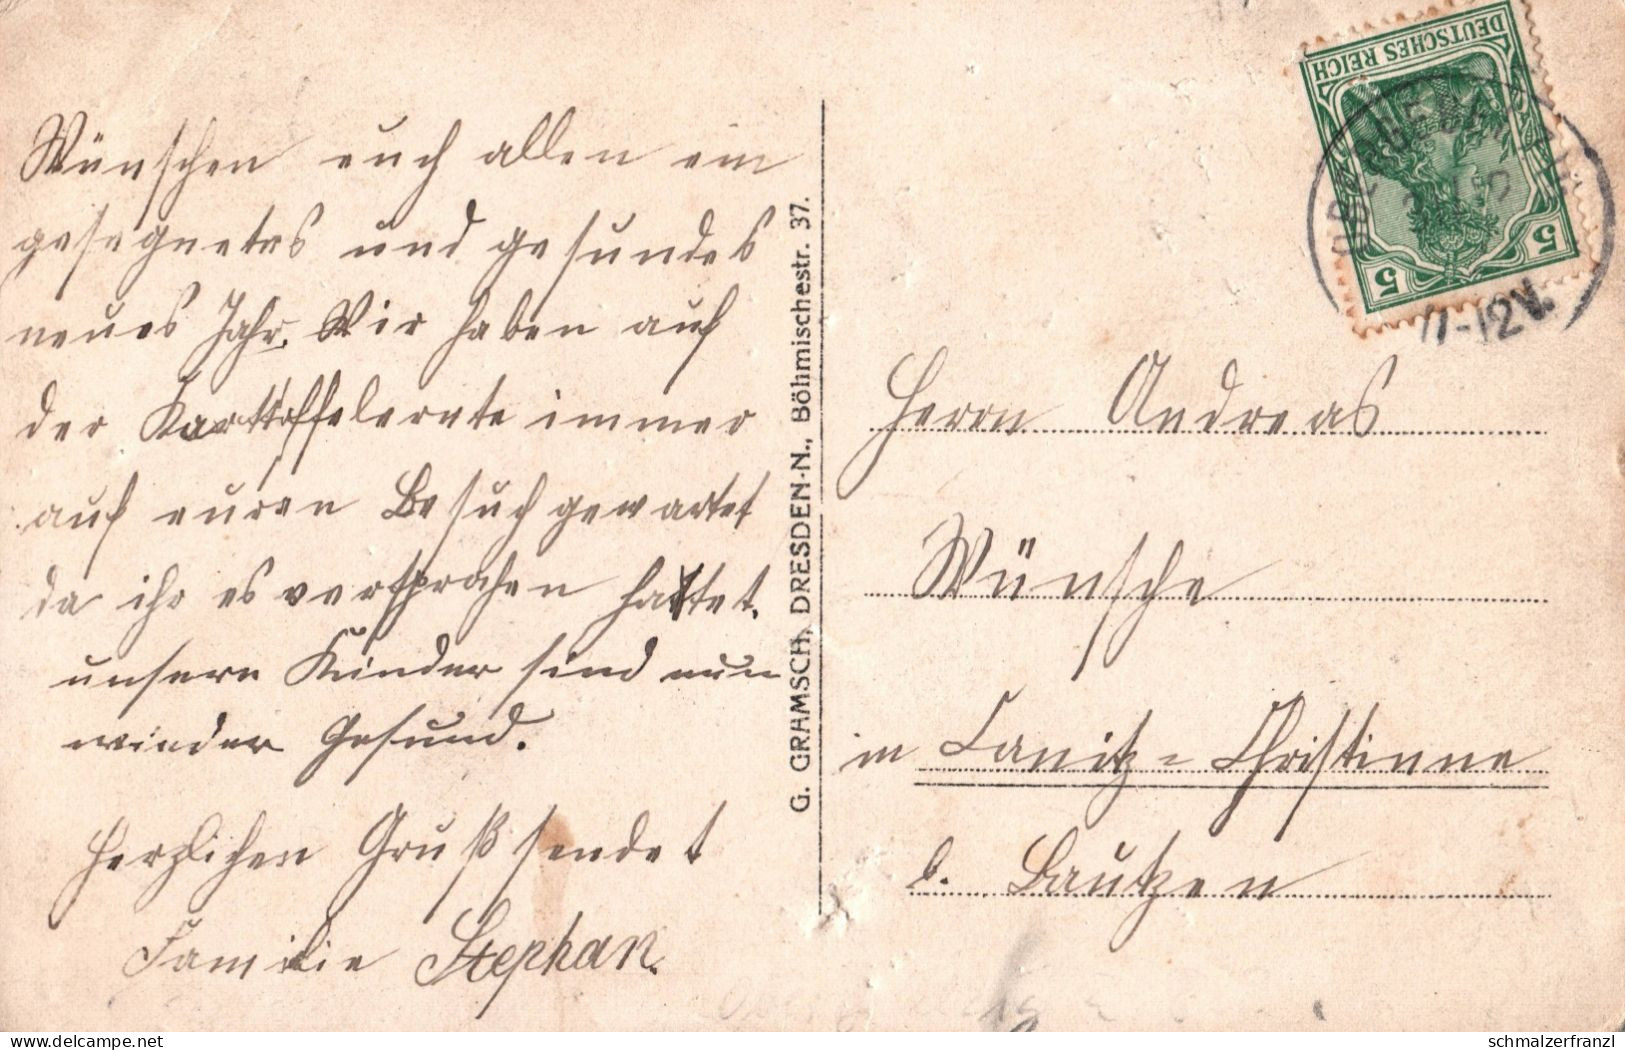 Wünschen euch allen ein
gesegnetes und gesundes
neues Jahr. Wir haben auf
der Kartoffelernte immer
auf euren Besuch gewartet
da ihr es versprochen hattet.
unsere Kinder sind nun
wieder Gesund.
Herzlichen Gruß sendet
Familie Stephan.
G. GRAMSCH, DRESDEN-N., Böhmischestr. 37.
DEUTSCHES REICH
5 5
11-12V.
Herrn Andreas
Wünsche
in Canitz=Christinne
b. Bautzen
schmalzerfranzl
delcampe.net